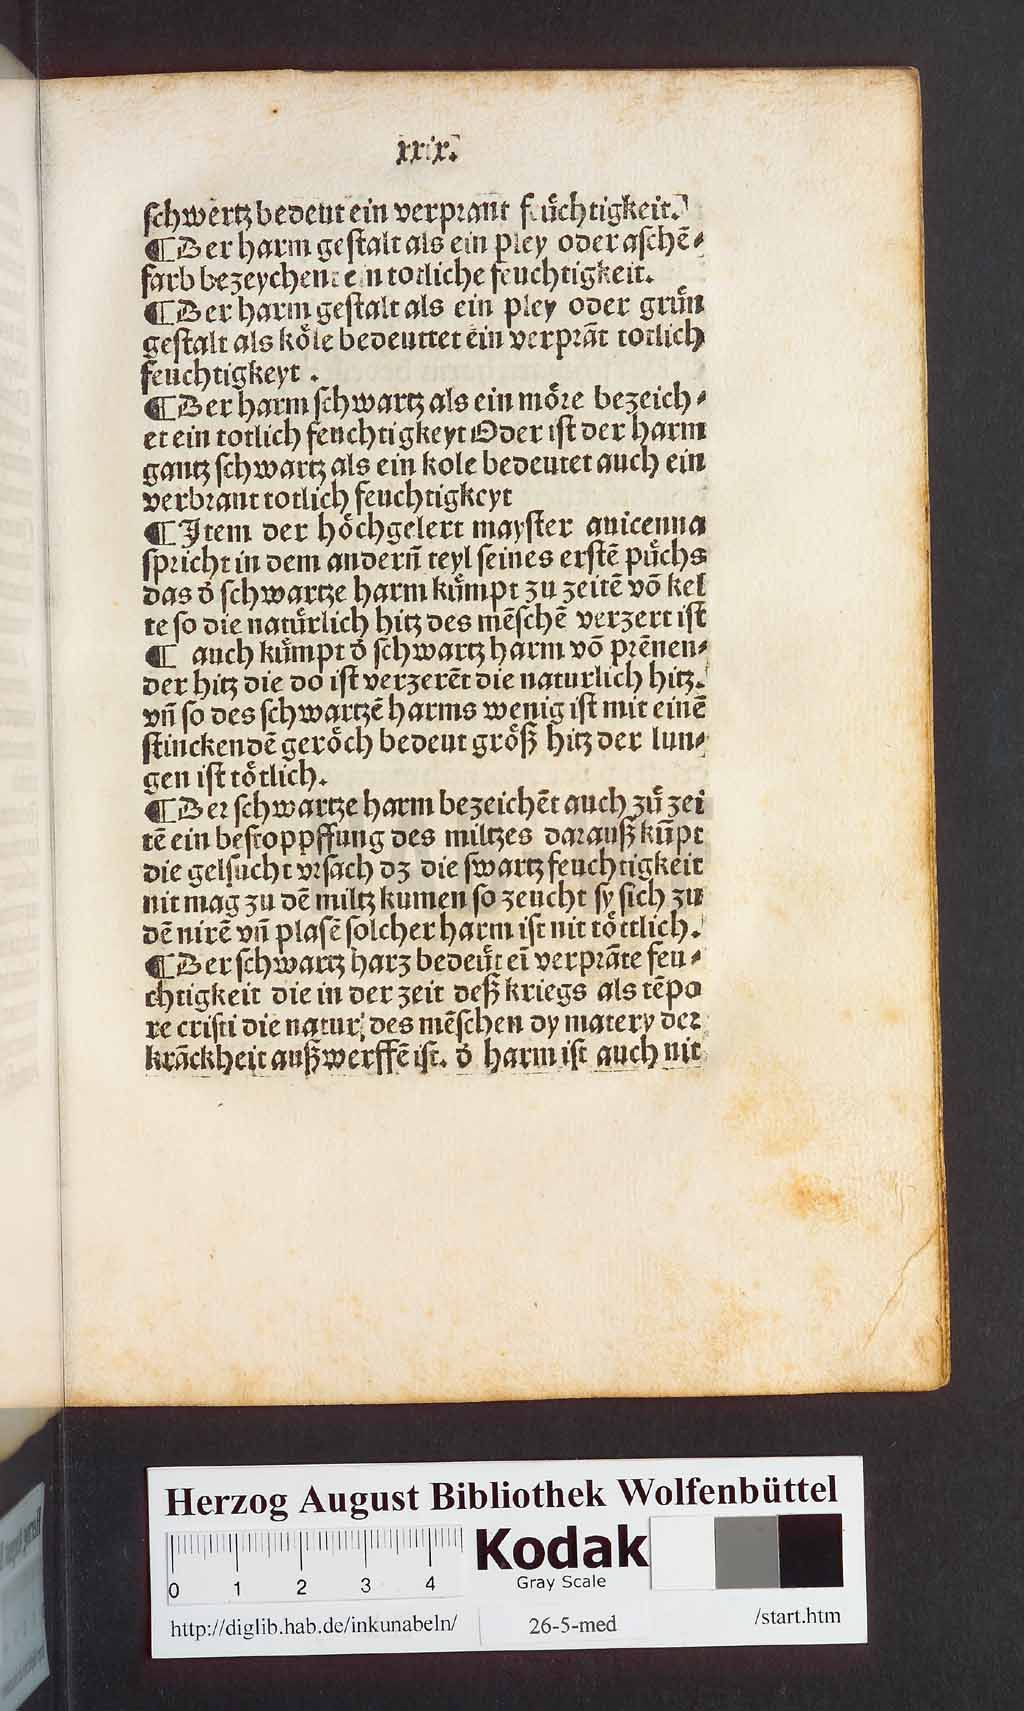 xxix.
ſchwertz bedeut ein verprant feuͤchtigkeit.
¶ Der harm geſtalt als ein pley oder aſchē⸗
farb bezeychent ein totliche feuchtigkeit.
¶ Der harm geſtalt als ein pley oder gruͤn
geſtalt als koͤle bedeuttet ein verprāt totlich
feuchtigkeyt .
¶ Der harm ſchwartz als ein moͤre bezeich⸗
et ein totlich feuchtigkeyt Oder iſt der harm
gantz ſchwartz als ein kole bedeutet auch ein
verbrant totlich feuchtigkeyt
¶ Item der hoͤchgelert mayſter auicenna
ſpricht in dem andern̄ teyl ſeines erſtē puͤchs
das d̓ ſchwartze harm kuͤmpt zu zeitē vō kel
te ſo die natuͤrlich hitz des mēſchē verzert iſt
¶ auch kuͤmpt d̓ ſchwartz harm vō prēnen⸗
der hitz die do iſt verzerēt die naturlich hitz.
vn̄ ſo des ſchwartzē harms wenig iſt mit einē
ſtinckendē geroͤch bedeut groͤß hitz der lun⸗
gen iſt toͤtlich.
¶ Der ſchwartze harm bezeichēt auch zuͤ zei
tē ein beſtoppffung des miltzes darauß kūpt
die gelſucht vrſach dz die ſwartz feuchtigkeit
nit mag zu dē miltz kumen ſo zeucht ſy ſich zu
dē nirē vn̄ plaſē ſolcher harm iſt nit toͤttlich.
¶ Der ſchwartz harz bedeuͤt eī verprāte feu⸗
chtigkeit die in der zeit deß kriegs als tēpo
re criſti die natur des mēſchen dy matery der
krāckheit außwerffē iſt. d̓ harm iſt auch nit
Herzog August Bibliothek Wolfenbüttel
0 1 2 3 4
Kodak
Gray Scale
http://diglib.hab.de/inkunabeln/
26-5-med
/start.htm